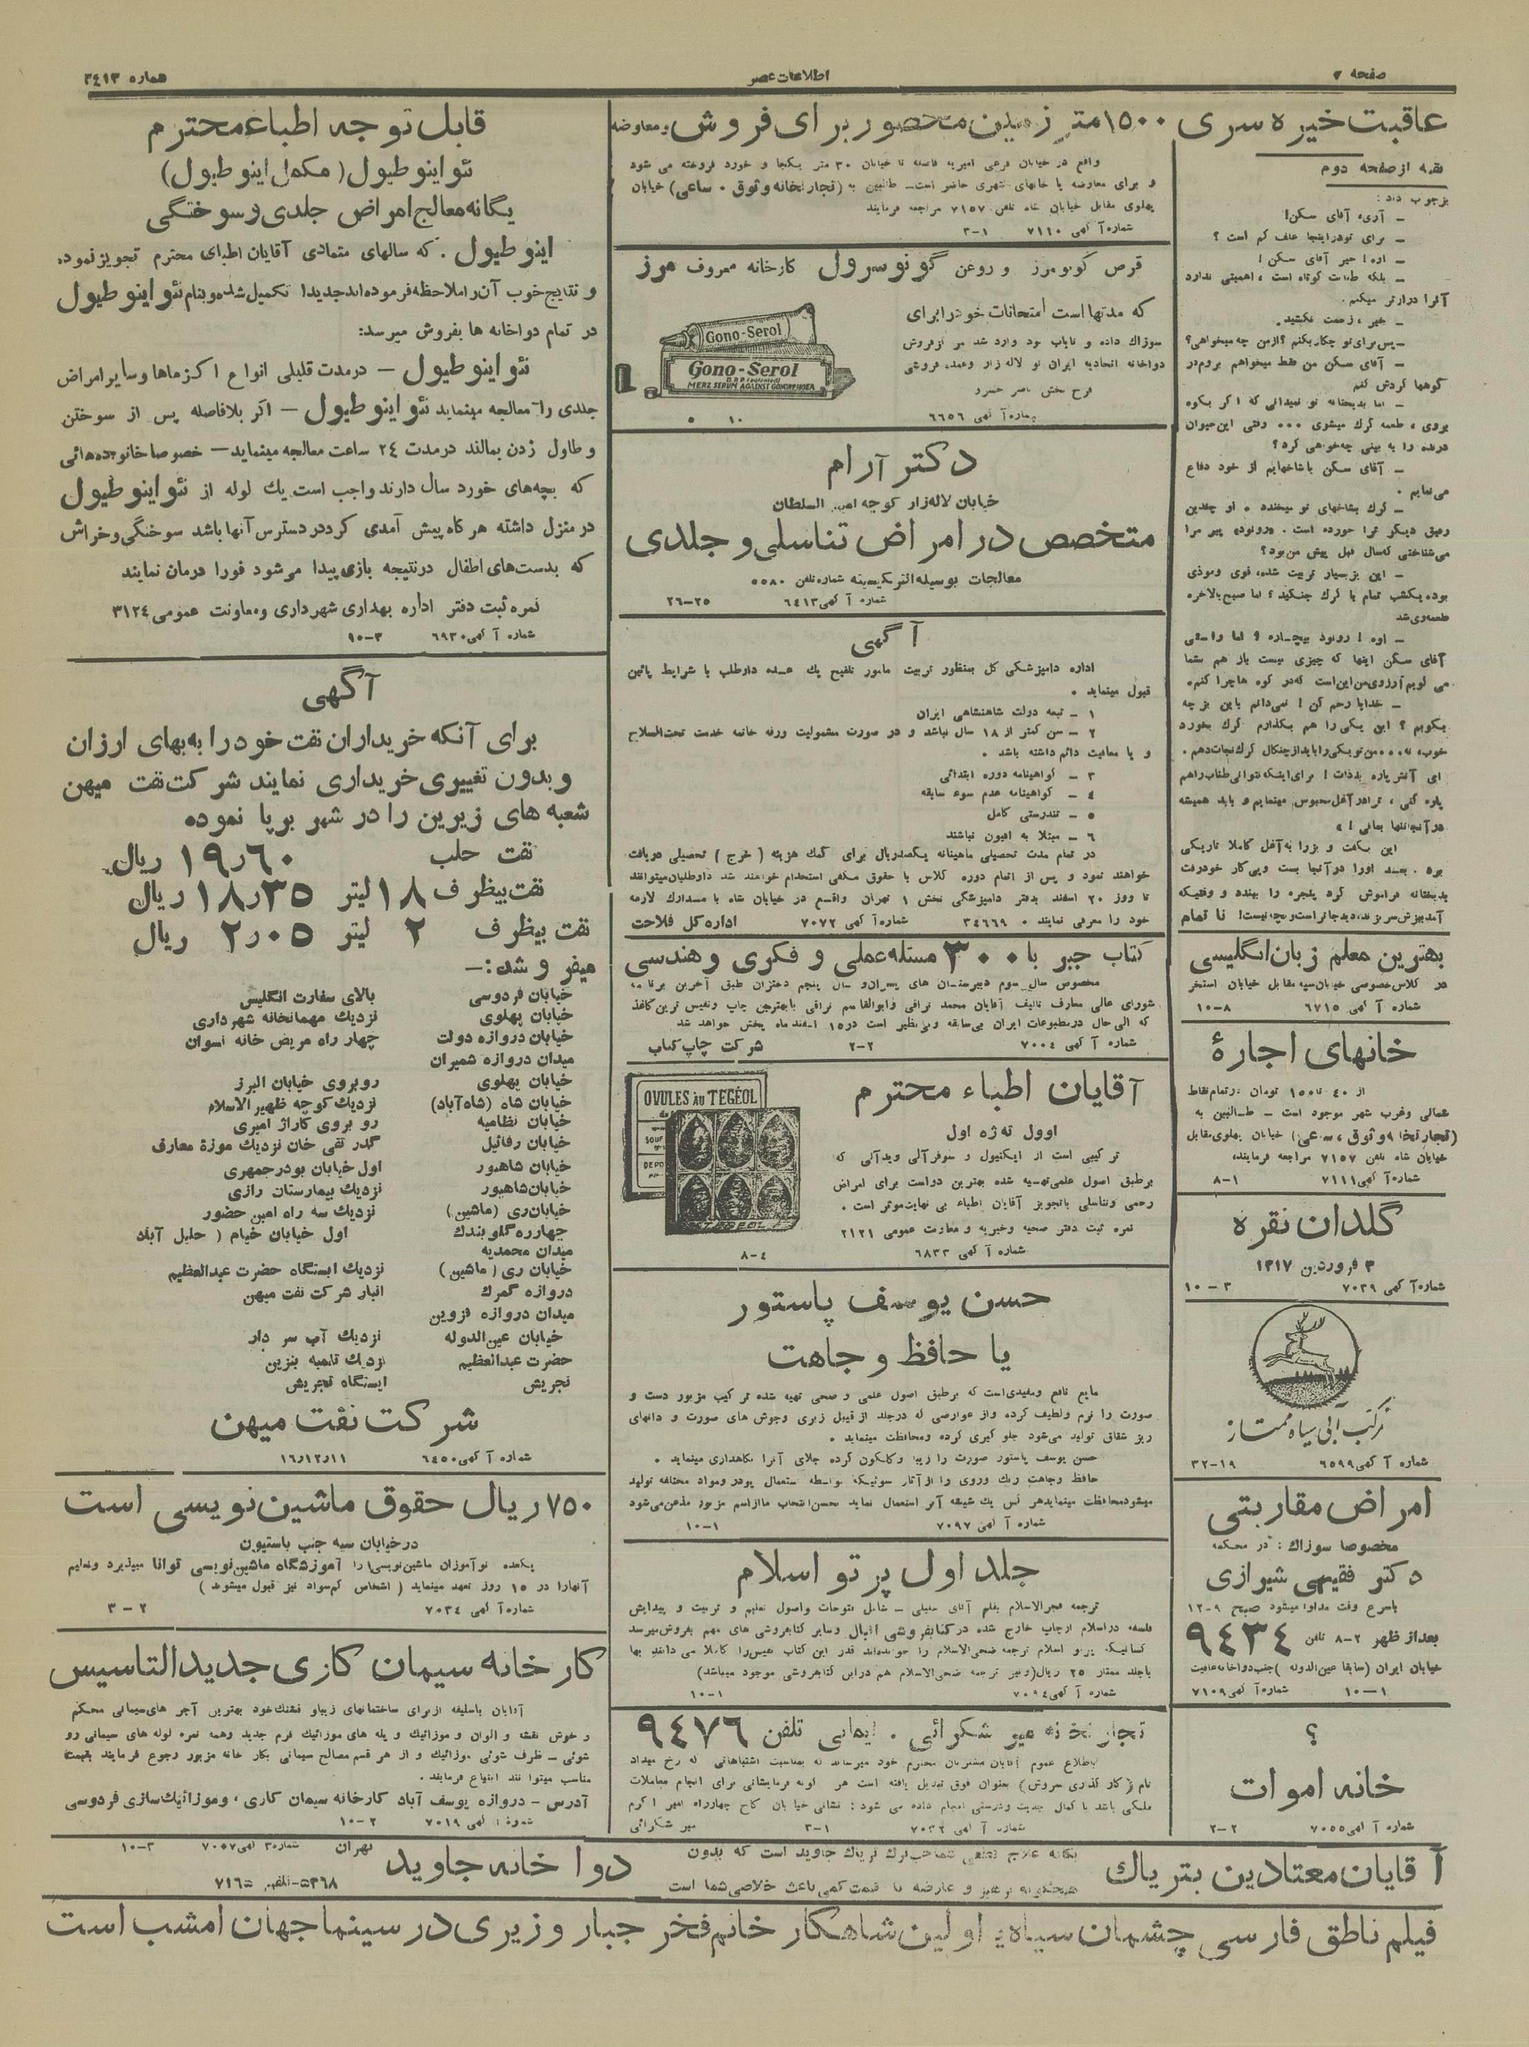 صفحه ۷
اطلاعات عصر
شماره ۳٤۱۳
عاقبت خیره سری
بقیه از صفحه دوم
بزجواب داد:
ـ آری، آقای سکن!
ـ برای تو در اینجا علف کم است ؟
ـ اوه! خیر آقای سکن!
ـ بلکه طنابت کوتاه است ، اهمیتی ندارد
آنرا درازتر میکنم.
ـ خیر ، زحمت نکشید.
ـ پس برای تو چکار بکنم ؟ از من چه میخواهی؟
ـ آقای سکن من فقط میخواهم بروم در
کوهها گردش کنم
ـ اما بدبختانه تو نمیدانی که اگر بکوه
بروی ، طعمه گرگ میشوی ... وقتی این حیوان
درنده را به بینی چه خواهی کرد؟
ـ آقای سکن با شاخهایم از خود دفاع
می نمایم .
ـ گرگ بشاخهای تو میخندد . او چندین
رفیق دیگر ترا خورده است . «رونود» پیر مرا
می شناختی که سال قبل پیش من بود؟
ـ این بز بسیار تربیت شده، قوی و موذی
بوده یکشب تمام با گرگ جنگید ؛ اما صبح بالاخره
طعمه وی شد
ـ اوه ! رونود بیچاره ؟ اما راستی
آقای سکن اینها که چیزی نیست باز هم بشما
می گویم آرزوی من این است که در کوه ها چرا کنم.
ـ خدایا رحم کن ! نمی دانم باین بز چه
بگویم ؟ این یکی را هم بگذارم گرگ بخورد
خوب، نه....من تو یکی را باید از چنگال گرگ نجات دهم.
ای آتش پاره بدذات ! برای اینکه نتوانی طناب را هم
پاره کنی ، ترا در آغل محبوس مینمایم و باید همیشه
در آنجا تنها بمانی ! »
این بگفت و بز را به آغل کاملا تاریکی
برد . بعد اورا در آنجا بست و پی کار خود رفت
بدبختانه فراموش کرد پنجره را ببندد و وقتیکه
آمد بزش سر بزند، دید جا تر است و بچه نیست! نا تمام
بهترین معلم زبان انگلیسی
در کلاس خصوصی خیابان سپه مقابل خیابان استخر
شماره آ گهی ٦٧١٥ ۸-۱۰
خانهای اجارهٔ
از ٤۰ تا ۱۵۰۰ تومان در تمام نقاط
شمالی و غرب شهر موجود است ـ طالبین به
(تجارتخانه وثوق ، ساعی) خیابان پهلوی مقابل
خیابان شاه تلفن ۷۱۵۷ مراجعه فرمایند،
شماره آ گهی ۷۱۱۱ ۱-۸
گلدان نقره
۳ فروردین ۱۳۱۷
شماره آ گهی ۷۰۳۹ ۳ - ۱۰
مرکب آبی سیاه ممتاز
شماره آ گهی ٦٥٩٩ ۱۹-۳۲
امراض مقاربتی
مخصوصا سوزاك : در محکمه
دکتر فقیهی شیرازی
باسرع وقت مداوا میشود صبح ۹-۱۲
بعد از ظهر ۲-۸ تلفن ۹٤۳٤
خیابان ایران (سابقا عین الدوله ) جنب دواخانه عافیت
شماره آ گهی ۷۱۰۹ ۱-۱۰
؟
خانه اموات
شماره آ گهی ۷۰۵۵ ۲-۲
۱٥۰۰متر زمین محصور برای فروش و معاوضه
واقع در خیابان فرعی امیریه فاصله تا خیابان ۳۰ متر یکجا و خورد فروخته می شود
و برای معاوضه با خانهای شهری حاضر است ـ طالبین به (تجارتخانه وثوق . ساعی) خیابان
پهلوی مقابل خیابان شاه تلفن ۷۱۵۷ مراجعه فرمایند
شماره آ گهی ۷۱۱۰ ۱-۳
قرص گونومرز و روغن گونوسرول کارخانه معروف مرز
که مدتها است امتحانات خودرا برای
سوزاك داده و نایاب بود وارد شد مرکز فروش
دواخانه اتحادیه ایران نو لاله زار و عمده فروشی
فرح بخش ناصر خسرو
شماره آ گهی ٦٦٥٦ ۱۰ ٥
Gono-Serol
Gono-Serol
MERZ SERUM AGAINST GONORRHOEA
دکتر آرام
خیابان لاله زار کوچه امین السلطان
متخصص در امراض تناسلی و جلدی
معالجات بوسیله الکتریسیته شماره تلفن ۵۵۸۰
شماره آ گهی ٦٤١٣ ۲۵-۲٦
آ گهی
اداره دامپزشکی کل بمنظور تربیت مامور تلقیح یك عده داوطلب با شرایط پائین
قبول مینماید .
۱ ـ تبعه دولت شاهنشاهی ایران
۲ ـ سن کمتر از ۱۸ سال نباشد و در صورت مشمولیت ورقه خاتمه خدمت تحت السلاح
و یا معافیت دائم داشته باشد .
۳ ـ گواهینامه دوره ابتدائی
٤ ـ گواهینامه عدم سوء سابقه
۵ ـ تندرستی کامل
٦ ـ مبتلا به افیون نباشند
در تمام مدت تحصیلی ماهیانه یکصد ریال برای کمك هزینه ( خرج ) تحصیلی دریافت
خواهند نمود و پس از اتمام دوره کلاس با حقوق مکفی استخدام خواهند شد داوطلبان میتوانند
تا روز ۲۰ اسفند بدفتر دامپزشکی بخش ۱ تهران واقع در خیابان شاه با مدارك لازمه
خود را معرفی نمایند . ٣٤٦٦٩ شماره آ گهی ۷۰۷۲ اداره کل فلاحت
کتاب جبر با ۳۰۰ مسئله عملی و فکری و هندسی
مخصوص سال سوم دبیرستان های پسران و سال پنجم دختران طبق آخرین برنامه
شورای عالی معارف تالیف آقایان محمد نراقی و ابوالقاسم نراقی با بهترین چاپ و نفیس ترین کاغذ
که الی حال در مطبوعات ایران بی سابقه و بی نظیر است در ۱۵ اسفند ماه پخش خواهد شد
شماره آ گهی ۷۰۰٤ ۲-۲ شرکت چاپ کتاب
آقایان اطباء محترم
اوول ته ژه اول
ترکیبی است از ایکتیول و سوفرآلی ویدآلی که
بر طبق اصول علمی تهیه شده بهترین دواست برای امراض
رحمی و تناسلی با تجویز آقایان اطباء بی نهایت موثر است .
نمره ثبت دفتر صحیه و خیریه و معاونت عمومی ۲۱۲۱
شماره آ گهی ٦٨٣٣ ٤-۸
OVULES AU TEGÉOL
حسن یوسف پاستور
یا حافظ وجاهت
مایع نافع و مفیدی است که بر طبق اصول علمی و صحی تهیه شده ترکیب مزبور دست و
صورت را نرم و لطیف کرده و از عوارضی که در جلد از قبیل زبری و جوش های صورت و دانهای
ریز شقاق تولید می شود جلوگیری کرده و محافظت مینماید .
حسن یوسف پاستور صورت را زیبا و گلگون کرده جلای آنرا نگاهداری مینماید .
حافظ وجاهت رنگ و روی را از آثار سوئیکه بواسطه استعمال پودر و مواد مختلفه تولید
میشود محافظت مینماید هر کس یك شیشه آنرا استعمال نماید بحسن انتخاب ما از اسم مزبور مذعن می شود
شماره آ گهی ۷۰۹۷ ۱-۱۰
جلد اول پرتو اسلام
ترجمه فجرالاسلام بقلم آقای خلیلی ـ شامل فتوحات و اصول تعلیم و تربیت و پیدایش
فلسفه در اسلام از چاپ خارج شده در کتابفروشی اقبال و سایر کتابفروشی های مهم بفروش میرسد
کسانیکه پرتو اسلام ترجمه ضحی الاسلام را خوانده اند قدر این کتاب نفیس را کاملا می دانند بها
با جلد ممتاز ۲۵ ریال (و نیز ترجمه ضحی الاسلام هم در این کتابفروشی موجود میباشد)
شماره آ گهی ۷۰۹٤ ۱-۱۰
تجارتخانه میر شکرائی . ایمانی تلفن ۹٤۷٦
باطلاع عموم آقایان مشتریان محترم خود میرساند که بمناسبت اشتباهاتی که رخ میداد
نام (کار گذاری سروش) بعنوان فوق تبدیل یافته است هر گونه فرمایشاتی برای انجام معاملات
ملکی باشد با کمال جدیت و درستی انجام داده می شود : نشانی خیابان کاخ چهارراه امیر اکرم
شماره آ گهی ۷۰۳۲ ۱-۳ میر شکرائی
قابل توجه اطباء محترم
نئو اینوطیول( مکمل اینوطیول)
یگانه معالج امراض جلدی و سوختگی
اینوطیول . که سالهای متمادی آقایان اطبای محترم تجویز نموده
و نتایج خوب آن را ملاحظه فرموده اند جدیدا تکمیل شده و بنام نئو اینوطیول
در تمام دواخانه ها بفروش میرسد:
نئو اینوطیول ـ در مدت قلیلی انواع اکزماها و سایر امراض
جلدی را معالجه مینماید نئو اینوطیول ـ اگر بلافاصله پس از سوختن
و طاول زدن بمالند در مدت ۲٤ ساعت معالجه مینماید ـ خصوصا خانوده هائی
که بچه های خورد سال دارند واجب است یك لوله از نئو اینوطیول
در منزل داشته هر گاه پیش آمدی کرد در دسترس آنها باشد سوختگی و خراش
که بدست های اطفال در نتیجه بازی پیدا می شود فورا درمان نمایند
نمره ثبت دفتر اداره بهداری شهرداری و معاونت عمومی ۳۱۲٤
شماره آ گهی ٦٩٣٠ ۳-۱۰
آگهی
برای آنکه خریداران نفت خود را به بهای ارزان
و بدون تغییری خریداری نمایند شرکت نفت میهن
شعبه های زیرین را در شهر برپا نموده
نفت حلب ۱۹٫٦۰ ریال
نفت بیظرف ۱۸ لیتر ۱۸٫۳۵ ریال
نفت بیظرف ۲ لیتر ۲٫۰۵ ریال
میفروشد:ـ
خیابان فردوسی بالای سفارت انگلیس
خیابان پهلوی نزدیك مهمانخانه شهرداری
خیابان دروازه دولت چهار راه مریض خانه نسوان
میدان دروازه شمیران
خیابان پهلوی روبروی خیابان البرز
خیابان شاه (شاه آباد) نزدیك کوچه ظهیر الاسلام
خیابان نظامیه رو بروی گاراژ امیری
خیابان رفائیل گذر تقی خان نزدیك موزۀ معارف
خیابان شاهپور اول خیابان بوذرجمهری
خیابان شاهپور نزدیك بیمارستان رازی
خیابان ری (ماشین) نزدیك سه راه امین حضور
چهارره گلوبندك اول خیابان خیام ( جلیل آباد
میدان محمدیه
خیابان ری ( ماشین ) نزدیك ایستگاه حضرت عبدالعظیم
دروازه گمرك انبار شرکت نفت میهن
میدان دروازه قزوین
خیابان عین الدوله نزدیك آب سر دار
حضرت عبدالعظیم نزدیك تلمبه بنزین
تجریش ایستگاه تجریش
شرکت نفت میهن
شماره آ گهی ٦٤٥٠ ۱٦٫۱۲٫۱۱
۷۵۰ ریال حقوق ماشین نویسی است
در خیابان سپه جنب باستیون
یکعده نو آموزان ماشین نویسی را آموزشگاه ماشین نویسی توانا میپذیرد و تعلیم
آنهارا در ۱۵ روز تعهد مینماید ( اشخاص کم سواد نیز قبول میشوند )
شماره آ گهی ۷۰۳٤ ۲ - ۳
کارخانه سیمان کاری جدیدالتاسیس
آقایان با سلیقه از برای ساختمانهای زیبا و قشنك خود بهترین آجر های سیمانی محکم
و خوش نقشه و الوان و موزائیك و پله های موزائیك فرم جدید و همه نمره لوله های سیمانی رو
شوئی ـ ظرف شوئی موزائیك و از هر قسم مصالح سیمانی بکار خانه مزبور رجوع فرمایند بقیمت
مناسب میتوانند ابتیاع فرمایند .
آدرس ـ دروازه یوسف آباد کارخانه سیمان کاری ، و موزائیك سازی فردوسی
شماره آ گهی ۷۰۱۹ ۲-۱۰
آقایان معتادین بتریاك
یگانه علاج قطعی شما حب ترك تریاك جاوید است که بدون
هیچگونه پرهیز و عارضه با قیمت کمی باعث خلاصی شما است
دواخانه جاوید
تهران شماره آ گهی ۷۰۵۷ ۳-۱۰
فیلم ناطق فارسی چشمان سیاه اولین شاهکار خانم فخر جبار وزیری در سینما جهان امشب است